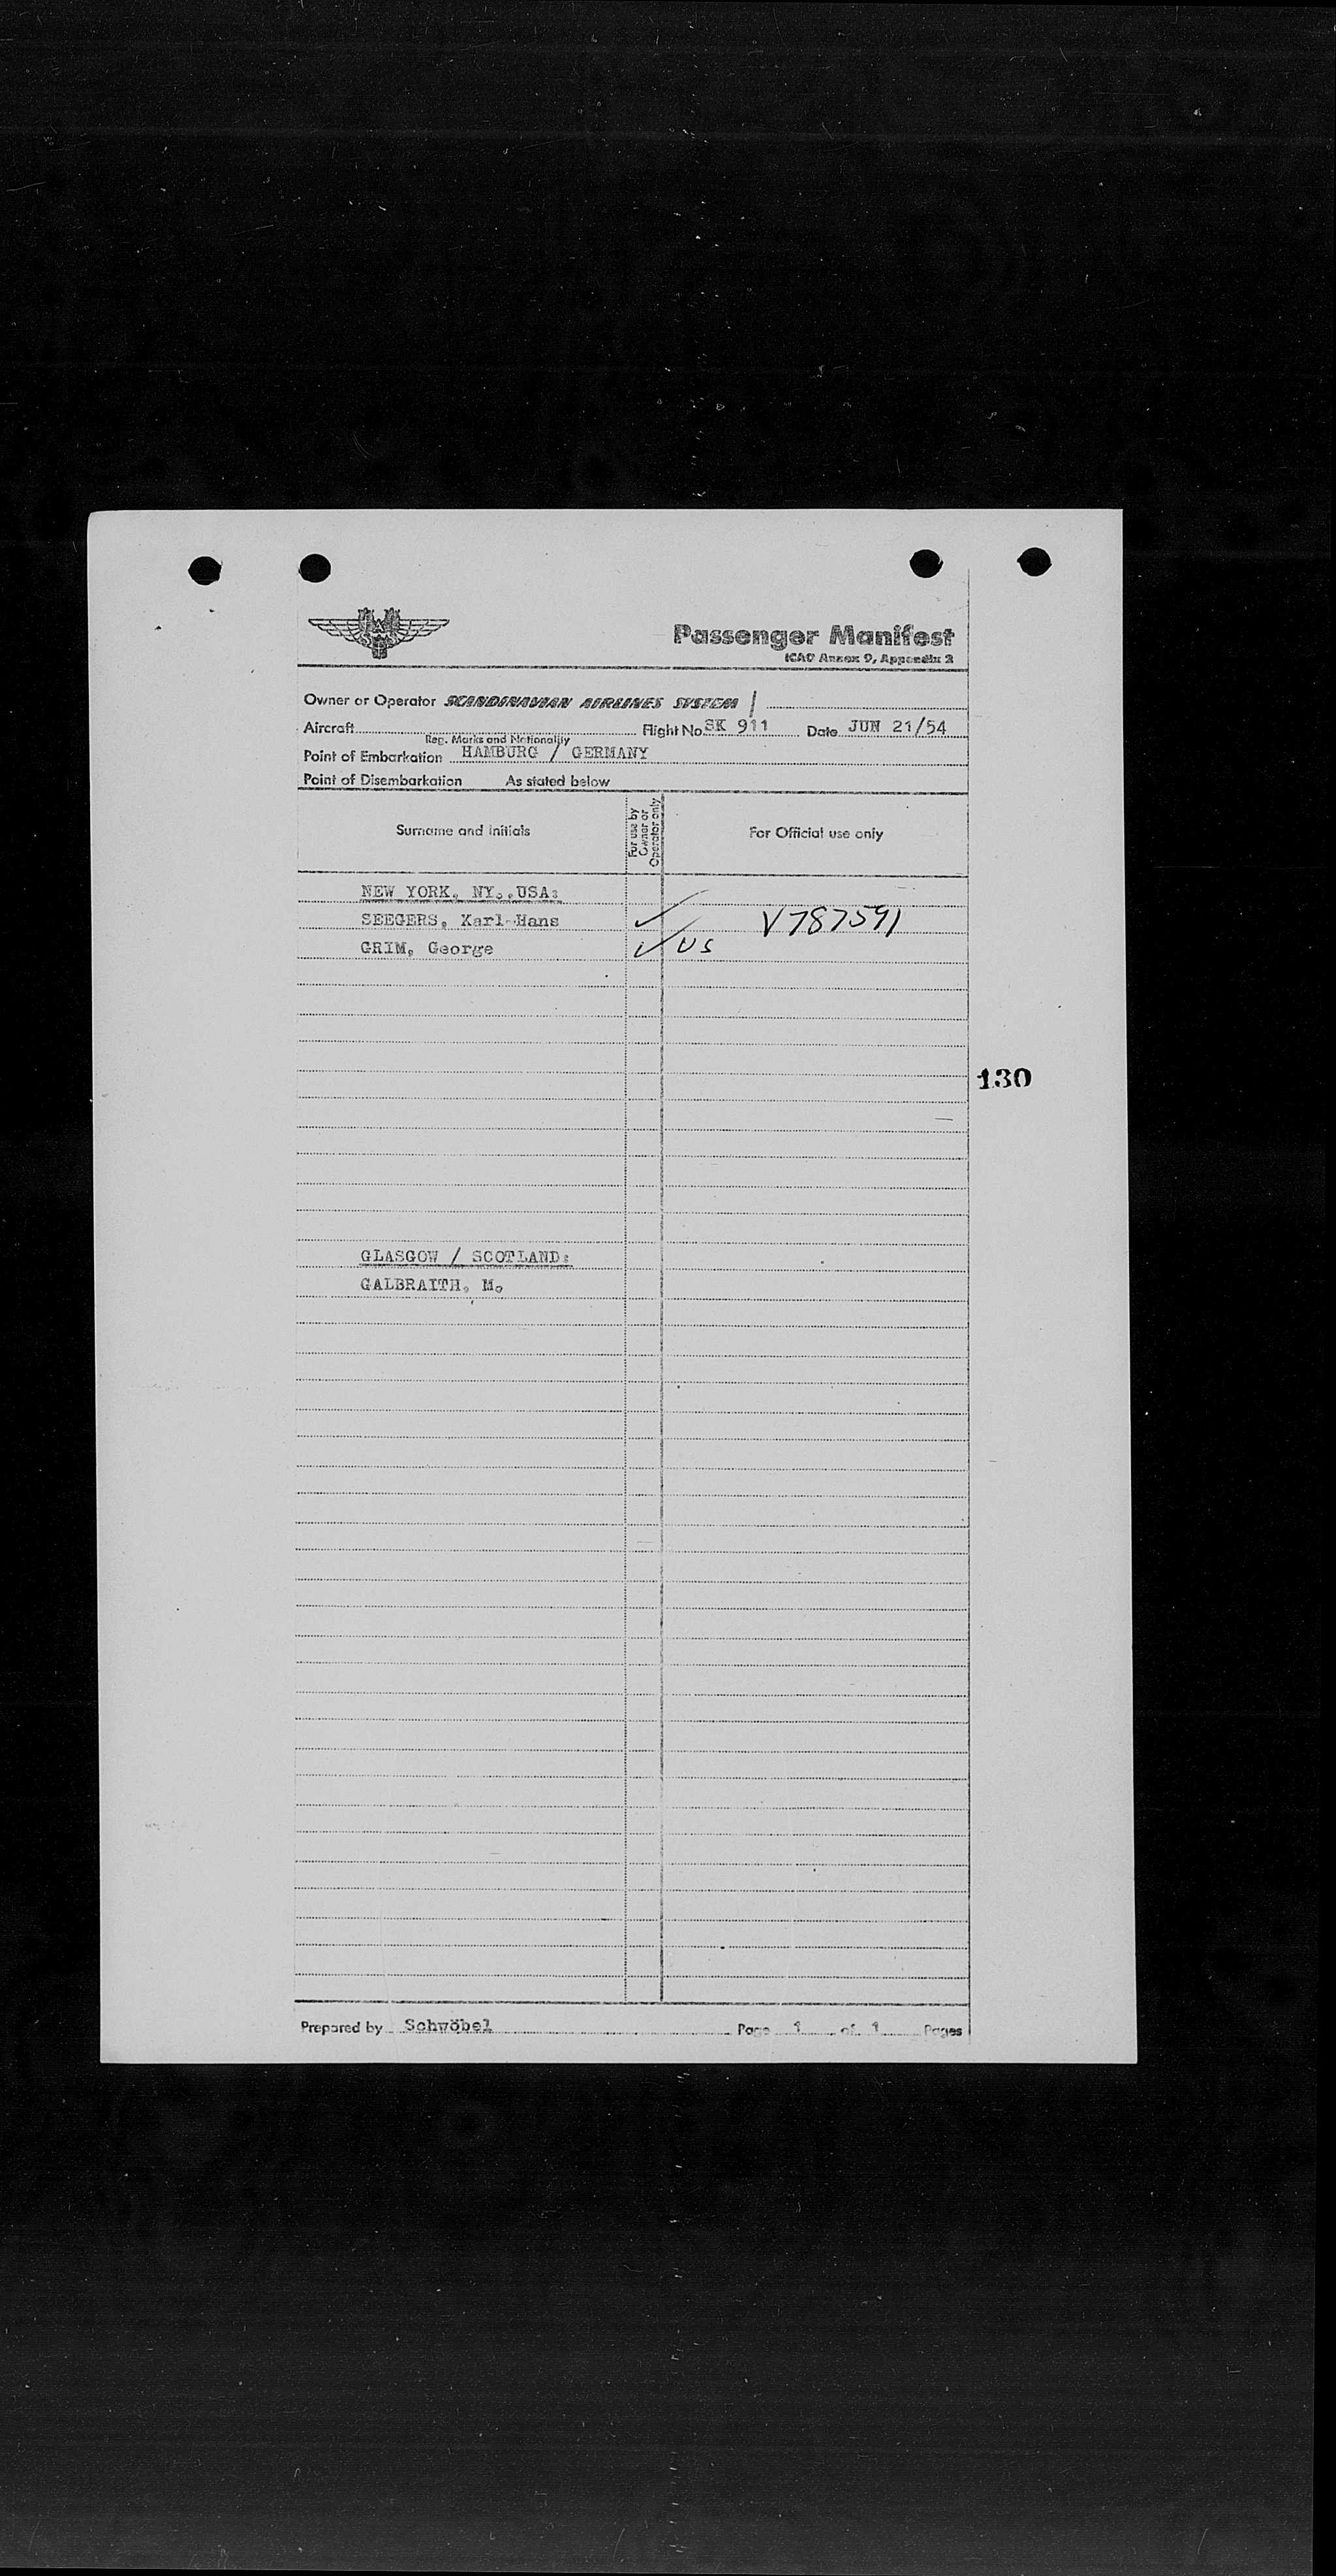 Passenger Manifest
ICAO Annex 9, Appendix 2
Owner or Operator SCANDINAVIAN AIRLINES SYSTEM /
Aircraft Flight No SK 911 Date JUN 21/54
Reg. Marks and Nationality
Point of Embarkation HAMBURG / GERMANY
Point of Disembarkation As stated below
Surname and Initials For use by Owner or Operator only For Official use only
NEW YORK, NY.,USA:
SEEGERS, Karl-Hans ✓ V787591
GRIM, George ✓ US
130
GLASGOW / SCOTLAND:
GALBRAITH, M.
Prepared by Schwöbel Page 1 of 1 Pages